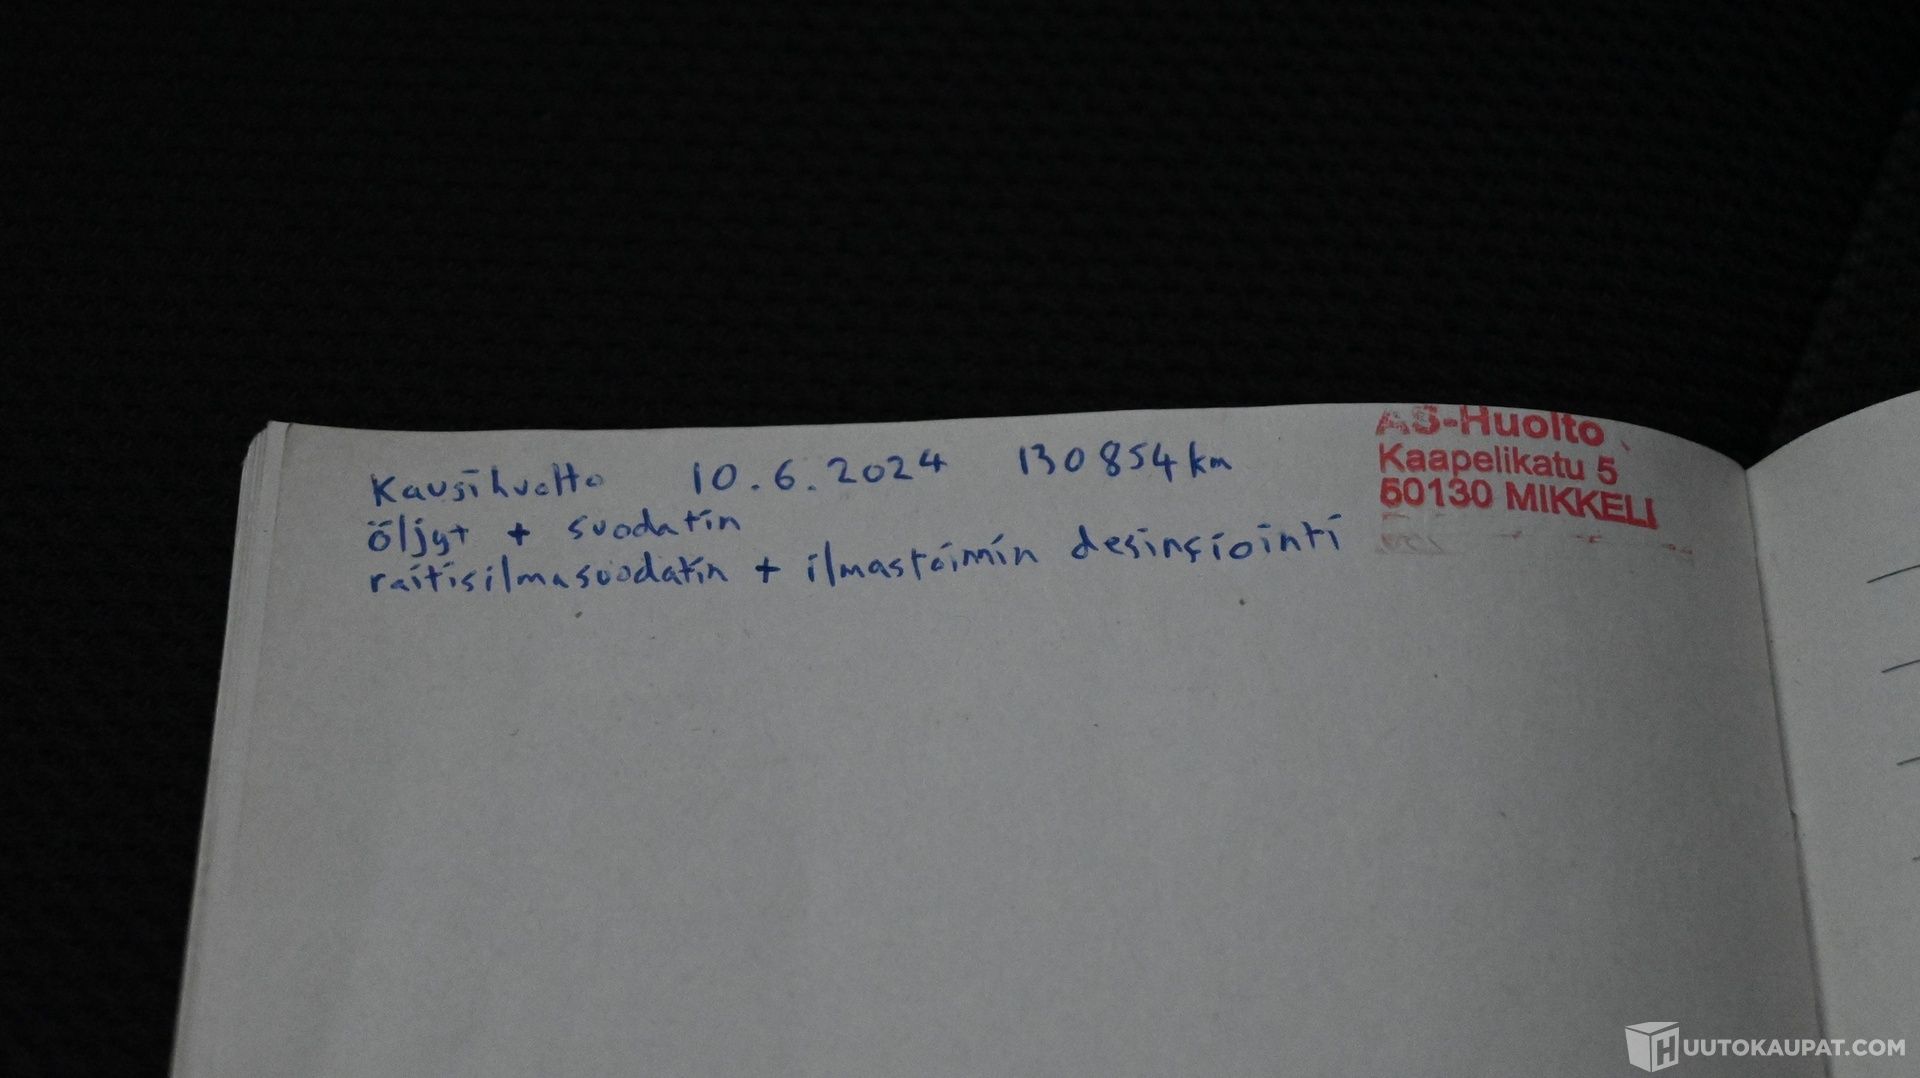 Kausihuolto 10.6.2024 130854 km
öljyt + suodatin
raitisilmasuodatin + ilmastoimin desinsiointi
AS-Huolto
Kaapelikatu 5
50130 MIKKELI
HUUTOKAUPAT.COM